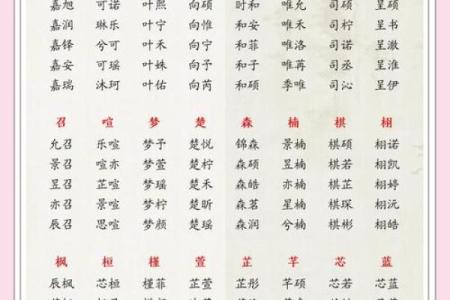 嘉旭 可诺 叶熙 向硕 时和 唯允 司硕 呈硕
嘉润 琳乐 叶宁 向柠 和安 唯禾 司柠 呈书
嘉铎 兮可 叶禾 向禾 和菲 唯洛 司诺 呈澈
嘉安 可瑶 叶姝 向予 和予 唯苒 司丞 呈淮
嘉瑞 沐珂 叶佑 向芮 和硕 季唯 司沁 呈伊
召 喧 梦 楚 森 楠 棋 栩
允召 乐喧 梦予 楚悦 锦森 景楠 棋硕 栩诺
景召 喧亦 梦萱 楚柠 森硕 昱楠 棋若 栩凯
昱召 芷喧 梦瑶 楚禾 森皓 亦楠 棋芷 栩婷
亦召 景喧 梦柠 楚昕 森茗 星楠 棋琛 栩沅
辰召 思喧 梦颜 楚瑶 森润 兮楠 棋彬 栩皓
枫 桓 槿 萱 芷 芊 芯 蓝
辰枫 芯桓 槿菲 芷萱 芷彤 芊硕 芯若